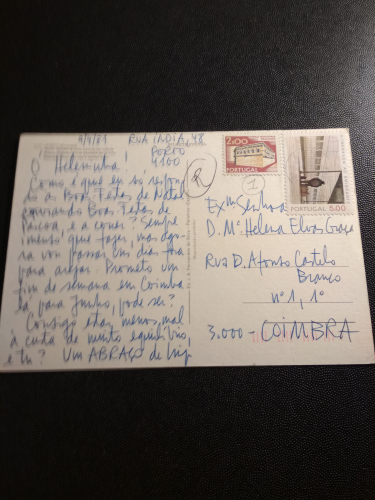 4/4/81 RUA INDIA, 48
PORTO
4100
Ó Heleninha!
Como é que eu só respondo
às Boas Festas de Natal
enviando Boas Festas de
Páscoa, e a cores? Sempre
imenso que fazer, mas ago-
ra vou passar um dia fora
para arejar. Prometo um
fim de semana em Coimbra
lá para Junho, pode ser?
Consigo estar menos mal
à custa de muito equilíbrio,
e tu? Um ABRAÇO de
R
1
2$00
PORTUGAL
PORTUGAL 5.00
Exmª Senhora
D. Mª Helena Elvas
RUA D. Afonso Castelo
Branco
nº 1, 1º
3.000 - COIMBRA